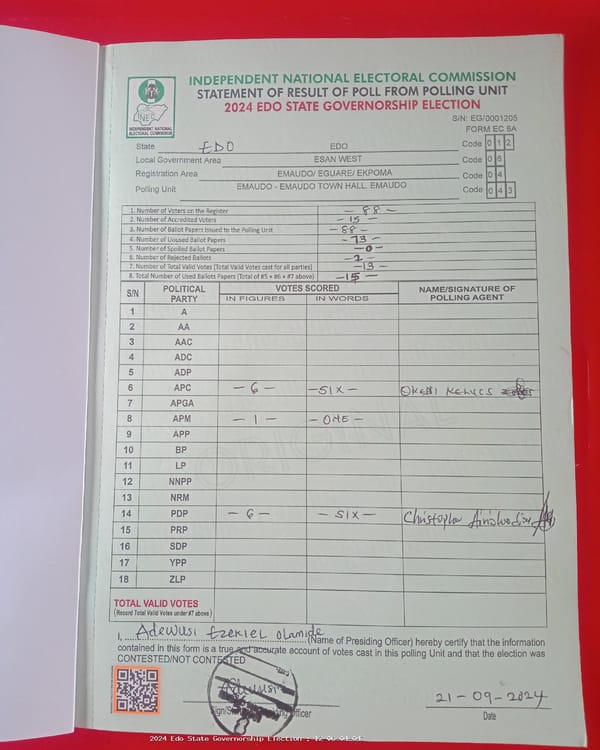 INDEPENDENT NATIONAL ELECTORAL COMMISSION
STATEMENT OF RESULT OF POLL FROM POLLING UNIT
2024 EDO STATE GOVERNORSHIP ELECTION
INEC
INDEPENDENT NATIONAL ELECTORAL COMMISSION
S/N: EG/0001205
FORM EC 8A
State EDO EDO Code 0 1 2
Local Government Area ESAN WEST Code 0 6
Registration Area EMAUDO/ EGUARE/ EKPOMA Code 0 4
Polling Unit EMAUDO - EMAUDO TOWN HALL. EMAUDO Code 0 4 3
1. Number of Voters on the Register - 88 -
2. Number of Accredited Voters - 15 -
3. Number of Ballot Papers Issued to the Polling Unit - 88 -
4. Number of Unused Ballot Papers - 73 -
5. Number of Spoiled Ballot Papers - 0 -
6. Number of Rejected Ballots - 2 -
7. Number of Total Valid Votes (Total Valid Votes cast for all parties) - 13 -
8. Total Number of Used Ballots Papers (Total of #5 + #6 + #7 above) - 15 -
S/N POLITICAL PARTY VOTES SCORED NAME/SIGNATURE OF POLLING AGENT
IN FIGURES IN WORDS
1 A
2 AA
3 AAC
4 ADC
5 ADP
6 APC - 6 - - SIX -
7 APGA
8 APM - 1 - - ONE -
9 APP
10 BP
11 LP
12 NNPP
13 NRM
14 PDP - 6 - - SIX - Christopher
15 PRP
16 SDP
17 YPP
18 ZLP
TOTAL VALID VOTES
(Record Total Valid Votes under #7 above)
I, Adewusi Ezekiel Olamide (Name of Presiding Officer) hereby certify that the information
contained in this form is a true and accurate account of votes cast in this polling Unit and that the election was
CONTESTED/NOT CONTESTED
Adewusi
21-09-2024
Officer
Date
2024 Edo State Governorship Election